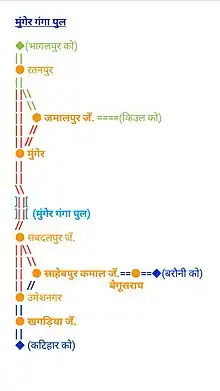 मुंगेर गंगा पुल
(भागलपुर को)
रतनपुर
जमालपुर जँ. ====(किउल को)
मुंगेर
(मुंगेर गंगा पुल)
सबदलपुर जँ.
साहेबपुर कमाल जँ.==●==◆(बरौनी को)
बेगूसराय
उमेशनगर
खगड़िया जँ.
(कटिहार को)